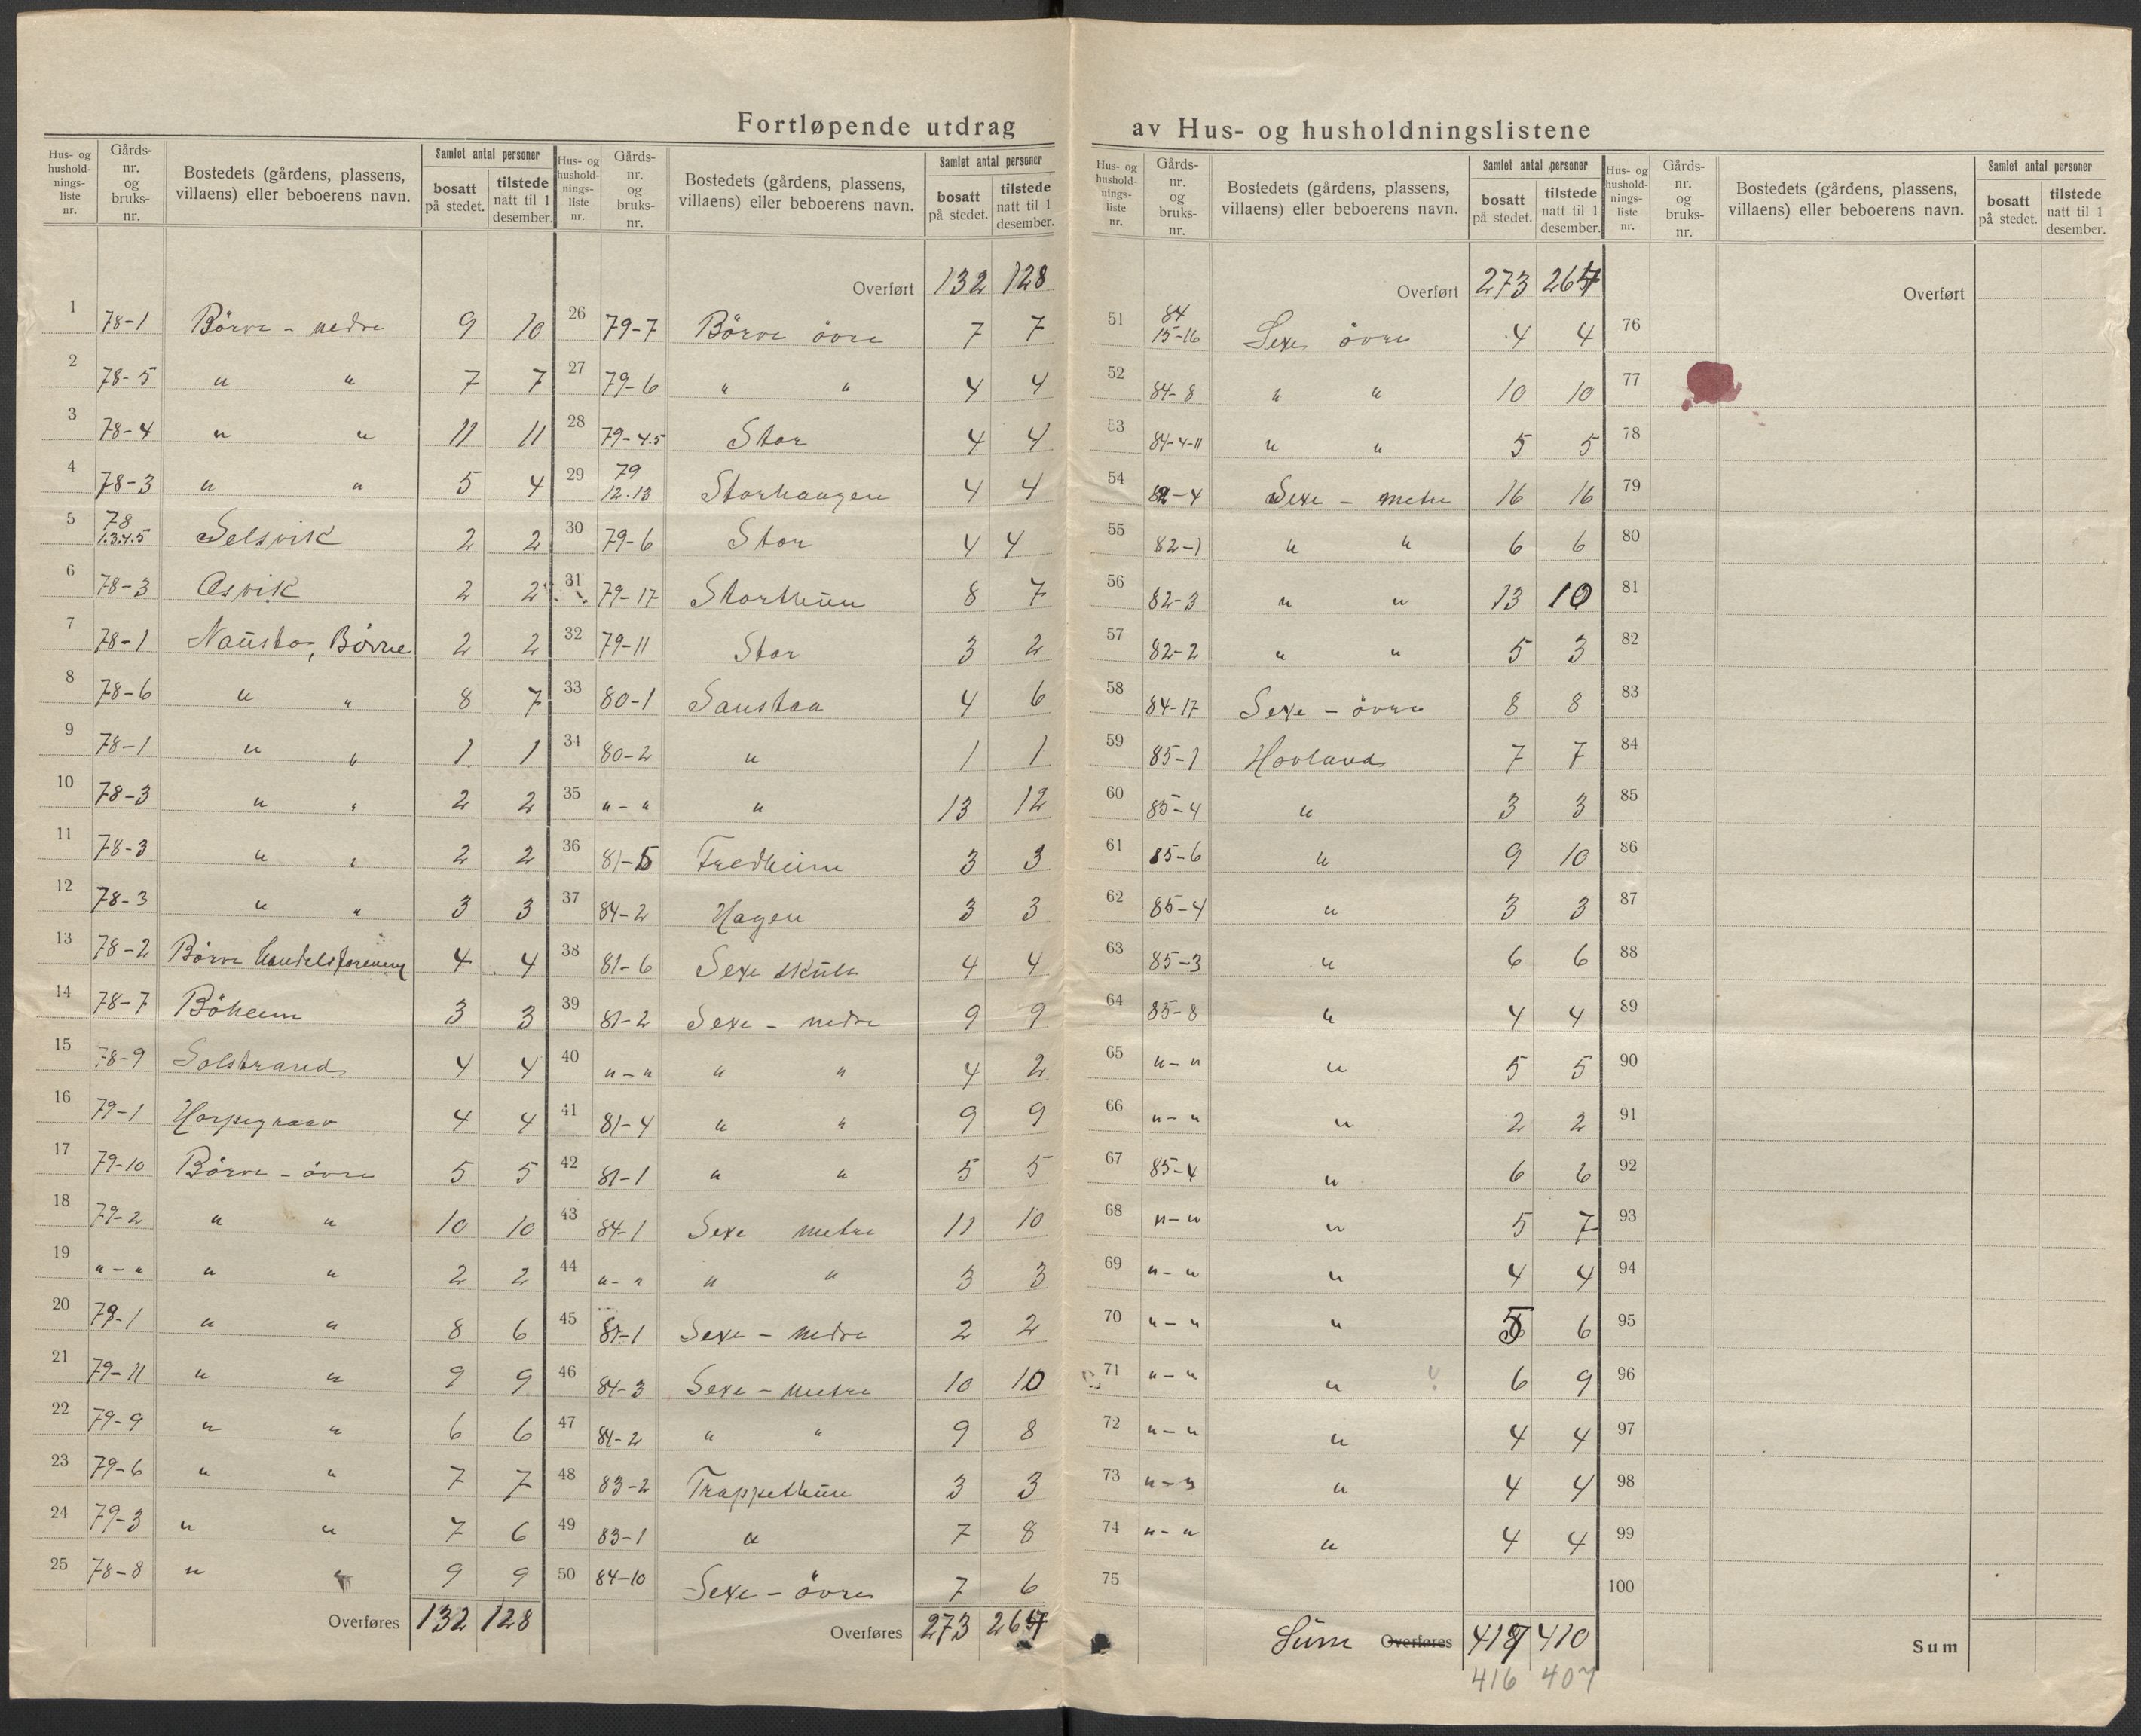 Fortløpende utdrag av Hus- og husholdningslistene
Hus- og husholdningsliste nr. | Gårdsnr. og bruksnr. | Bostedets (gårdens, plassens, villaens) eller beboerens navn. | Samlet antal personer | bosatt på stedet. | tilstede natt til 1 desember.
1 78-1 Börve - nedre 9 10
2 78-5 " " 7 7
3 78-4 " " 11 11
4 78-3 " " 5 4
5 78 1.3.4.5 Selsvik 2 2
6 78-3 Osvik 2 2
7 78-1 Nausto, Börve 2 2
8 78-6 " " 8 7
9 78-1 " " 1 1
10 78-3 " " 2 2
11 78-3 " " 2 2
12 78-3 " " 3 3
13 78-2 Börve Handelsforening 4 4
14 78-7 Böheim 3 3
15 78-9 Solstrand 4 4
16 79-1 Horpegraav 4 4
17 79-10 Börve - övre 5 5
18 79-2 " " 10 10
19 "-" " " 2 2
20 79-1 " " 8 6
21 79-11 " " 9 9
22 79-9 " " 6 6
23 79-6 " " 7 7
24 79-3 " " 7 6
25 78-8 " " 9 9
Overføres 132 128
Hus- og husholdningsliste nr. | Gårdsnr. og bruksnr. | Bostedets (gårdens, plassens, villaens) eller beboerens navn. | Samlet antal personer | bosatt på stedet. | tilstede natt til 1 desember.
Overført 132 128
26 79-7 Börve övre 7 7
27 79-6 " " 4 4
28 79-4.5 Stor 4 4
29 79 12.13 Storhaugen 4 4
30 79-6 Stor 4 4
31 79-17 Storthün 8 7
32 79-11 Stor 3 2
33 80-1 Sanstaa 4 6
34 80-2 " 1 1
35 "-" " 13 12
36 81-5 Fredheim 3 3
37 84-2 Hagen 3 3
38 81-6 Sexe skule 4 4
39 81-2 Sexe - nedre 9 9
40 "-" " " 4 2
41 81-4 " " 9 9
42 81-1 " " 5 5
43 84-1 Sexe metre 11 10
44 "-" " " 3 3
45 81-1 Sexe - nedre 2 2
46 84-3 Sexe - metre 10 10
47 84-2 " " 9 8
48 83-2 Trappethün 3 3
49 83-1 " 7 8
50 84-10 Sexe - övre 7 6
Overføres 273 264
Hus- og husholdningsliste nr. | Gårdsnr. og bruksnr. | Bostedets (gårdens, plassens, villaens) eller beboerens navn. | Samlet antal personer | bosatt på stedet. | tilstede natt til 1 desember.
Overført 273 264
51 84 15-16 Sexe övre 4 4
52 84-8 " " 10 10
53 84-4-11 " " 5 5
54 82-4 Sexe - metre 16 16
55 82-1 " " 6 6
56 82-3 " " 13 10
57 82-2 " " 5 3
58 84-17 Sexe - övre 8 8
59 85-1 Hovland 7 7
60 85-4 " 3 3
61 85-6 " 9 10
62 85-4 " 3 3
63 85-3 " 6 6
64 85-8 " 4 4
65 "-" " 5 5
66 "-" " 2 2
67 85-4 " 6 6
68 "-" " 5 7
69 "-" " 4 4
70 "-" " 5 6
71 "-" " 6 9
72 "-" " 4 4
73 "-" " 4 4
74 "-" " 4 4
75
Sum Overføres 417 410
416 407
Hus- og husholdningsliste nr. | Gårdsnr. og bruksnr. | Bostedets (gårdens, plassens, villaens) eller beboerens navn. | Samlet antal personer | bosatt på stedet. | tilstede natt til 1 desember.
Overført
76
77
78
79
80
81
82
83
84
85
86
87
88
89
90
91
92
93
94
95
96
97
98
99
100
Sum